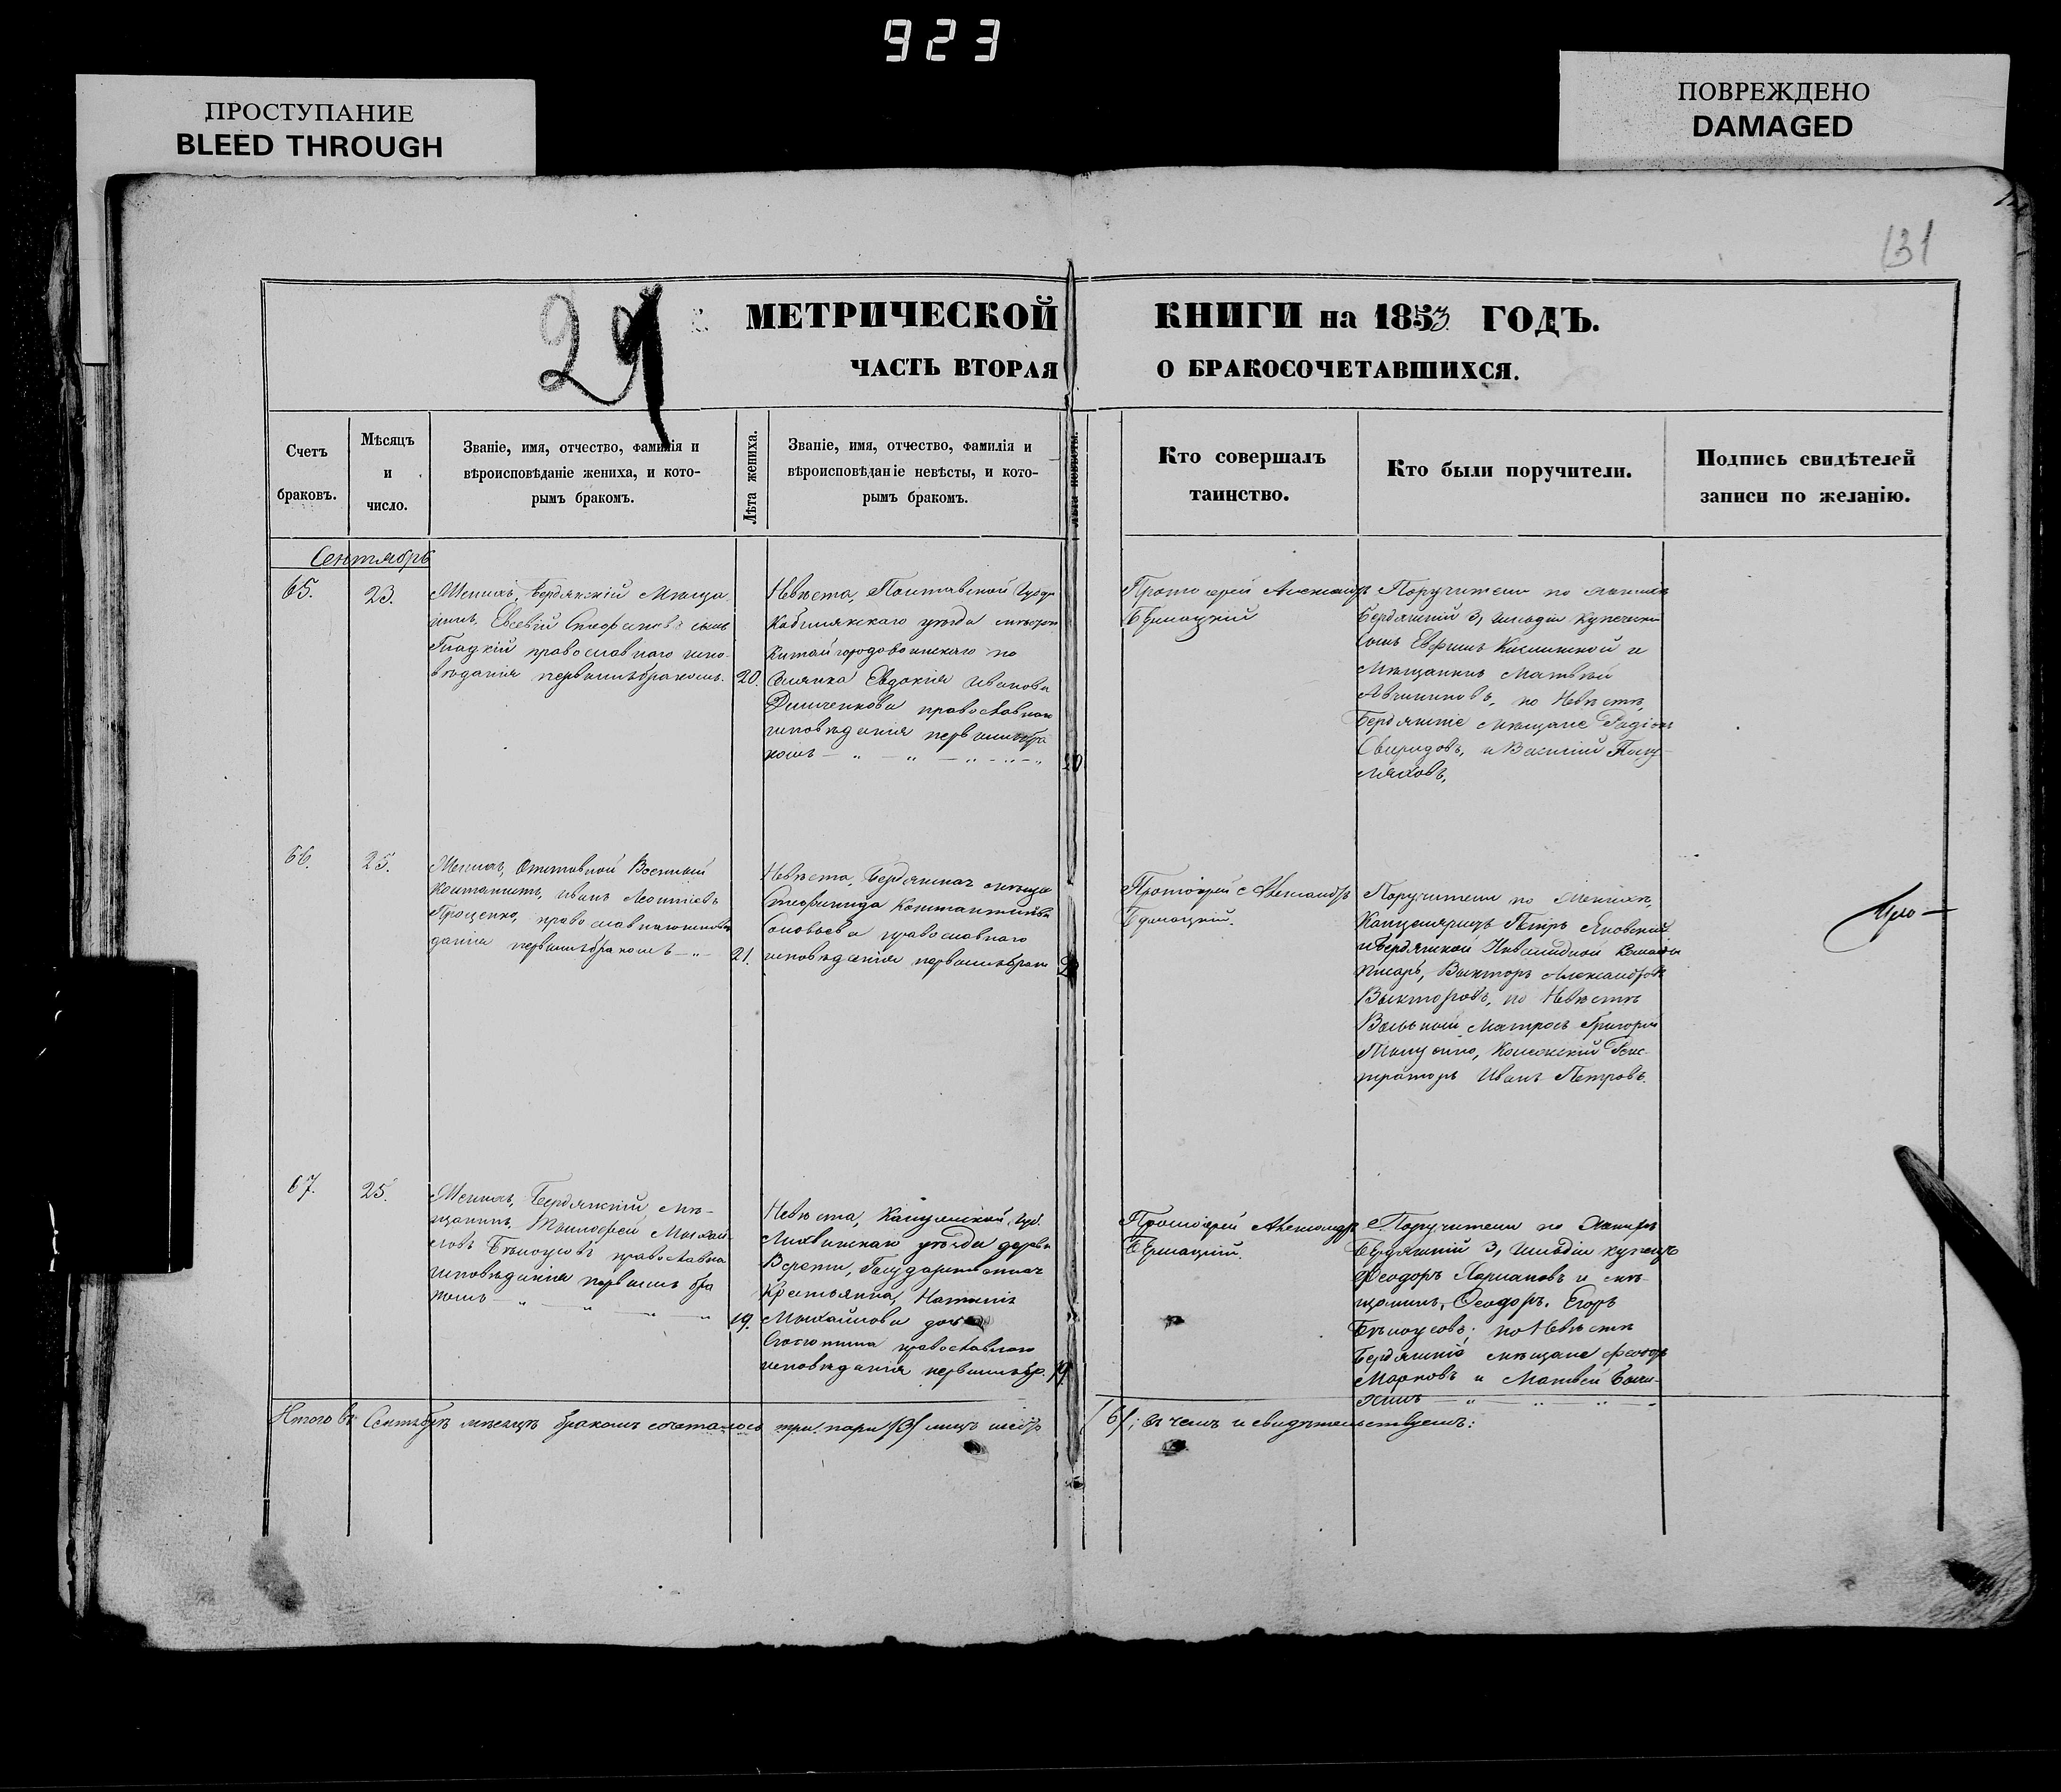 923
ПРОСТУПАНИЕ
BLEED THROUGH
ПОВРЕЖДЕНО
DAMAGED
131
29
МЕТРИЧЕСКОЙ КНИГИ на 1853 ГОДЪ.
ЧАСТЬ ВТОРАЯ О БРАКОСОЧЕТАВШИХСЯ.
Счетъ
браковъ.
Мѣсяцъ
и
число.
Званіе, имя, отчество, фамилія и
вѣроисповѣданіе жениха, и кото-
рымъ бракомъ.
Лѣта жениха.
Званіе, имя, отчество, фамилія и
вѣроисповѣданіе невѣсты, и кото-
рымъ бракомъ.
Лѣта невѣсты.
Кто совершалъ
таинство.
Кто были поручители.
Подпись свидѣтелей
записи по желанію.
Сентябрь
65.
23.
Женихъ, Бердянскій Мѣща
нинъ, Евсевій Стефановъ сынъ
Гладкій православнаго испо-
вѣданія первымъ бракомъ.
20.
Невѣста, Полтавской Губер
Кобелякскаго уѣзда мѣстеч
Китайгородо
селянка Евдокія Иванова
православнаго
исповѣданія первымъ бра
комъ
20
Протоіерей Александръ
Поручители по женихѣ
Бердянскій 3, гильдіи купеческ
сынъ Ефимъ и
Мѣщанинъ Матвѣй
по Невѣстѣ,
Бердянскіе мѣщане Радіонъ
Свиридовъ, и Василій
66.
25.
Женихъ, Отставной Военный
Иванъ Леонтіевъ
Проценко, православнаго исповѣ
данія первымъ бракомъ
21.
Невѣста, Бердянская мѣщан
Стефанида Константинова
Соловьева православнаго
исповѣданія первымъ брак
Протоіерей Александръ
Поручители по Женихѣ,
Канцеляристъ Петръ Яновскій
и Бердянской Инвалидной Команды
писарь, Викторъ Александровъ
Викторовъ, по Невѣстѣ
Вольный матросъ Григорій
Колежскій Реги-
страторъ Иванъ Петровъ.
67.
25.
Женихъ, Бердянскій мѣ-
щанинъ, Тимофей Михай
ловъ Бѣлоусовъ православна
исповѣданія первымъ бра
комъ
19.
Невѣста, Калужской Губ.
Лихвинскаго уѣзда деревн
Государственная
Крестьянка, Наталія
Михайлова дочь
православнаго
исповѣданія первымъ бр.
19.
Протоіерей Александръ
Поручители по Женихѣ
Бердянскій 3, гильдіи купецъ
Феодоръ и мѣ-
щанинъ, Феодоръ. Егоръ
Бѣлоусовъ; по Невѣстѣ
Бердянскіе мѣщане Феодоръ
Марковъ и Матвѣй
Итого въ Сентябрѣ мѣсяцѣ бракомъ сочеталось три пары /3/ лицъ шесть /6/; въ чемъ и свидѣтельствуемъ: